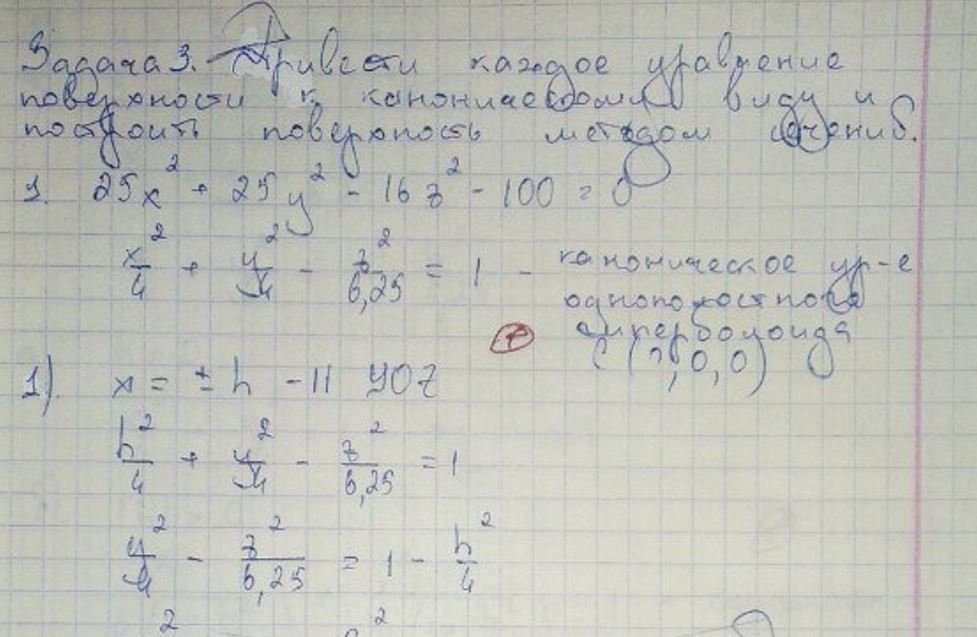 Задача 3. Привести каждое уравнение
поверхности к каноническому виду и
построить поверхность методом сечений.
1. 25x² + 25y² - 16z² - 100 = 0
x²/4 + y²/4 - z²/6,25 = 1 - каноническое ур-е
однополостного
гиперболоида
C (0, 0, 0)
1). x = ± h - || YOZ
h²/4 + y²/4 - z²/6,25 = 1
y²/4 - z²/6,25 = 1 - h²/4